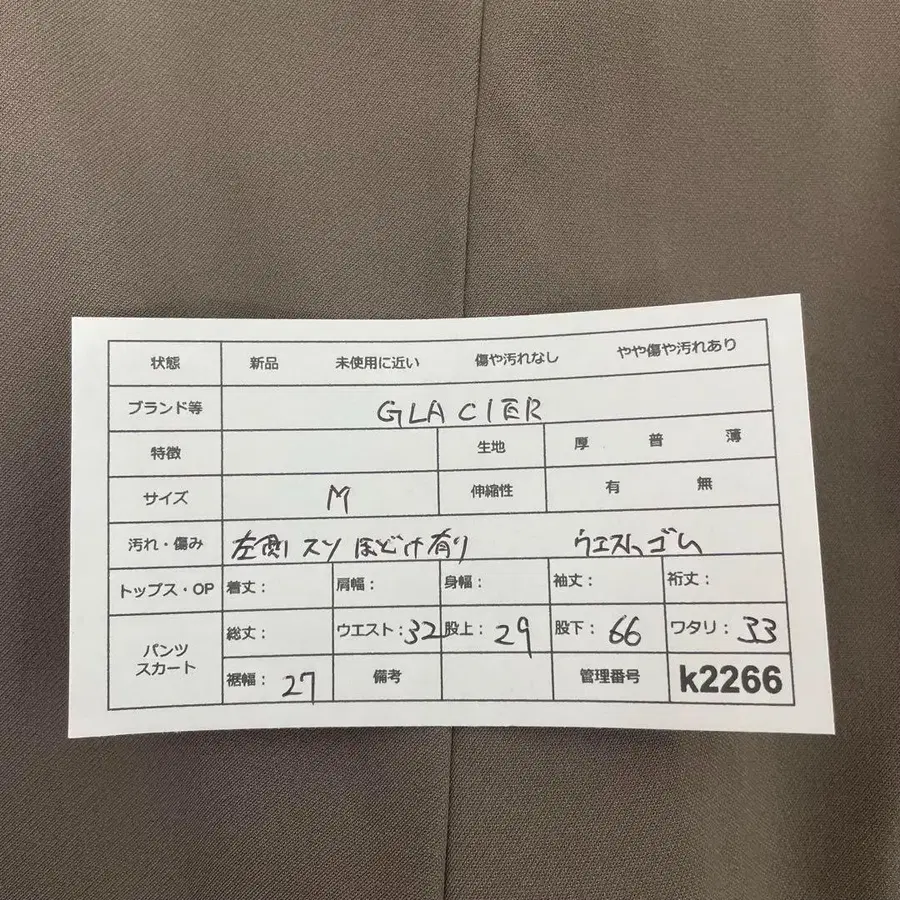 状態 新品 未使用に近い 傷や汚れなし やや傷や汚れあり
ブランド等 GLACIER
特徴 生地 厚 普 薄
サイズ M 伸縮性 有 無
汚れ・傷み 左側スソほどけ有り ウエストゴム
トップス・OP 着丈： 肩幅： 身幅： 袖丈： 裄丈：
パンツ スカート 総丈： ウエスト：32 股上：29 股下：66 ワタリ：33
裾幅：27 備考 管理番号 k2266